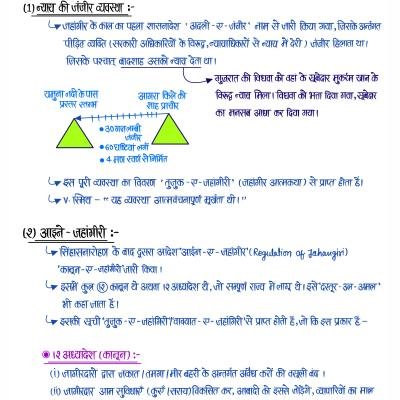 (1) न्याय की जंजीर व्यवस्था :-
जहांगीर के काल का पहला शासनादेश 'अदली-ए-जंजीर' नाम से जारी किया गया, जिसके अन्तर्गत
पीड़ित व्यक्ति (सरकारी अधिकारियों के विरुद्ध, न्यायाधिकारों से न्याय में देरी) जंजीर हिलाता था।
जिसके पश्चात् बादशाह उसको न्याय देता था।
गुजरात की विधवा को वहा के सूबेदार मुकर्रम खान के
विरुद्ध न्याय मिला। विधवा को भत्ता दिया गया, सूबेदार
का मनसब आधा कर दिया गया।
यमुना नदी के पास
प्रस्तर स्तम्भ
आगरा किले की
शाह प्राचीर
• 30 गज लम्बी
जंजीर
• 60 घण्टियां लगी
• 4 मन स्वर्ण से निर्मित
इस पूरी व्यवस्था का विवरण 'तुजुक-ए-जहांगीरी' (जहांगीर आत्मकथा) से प्राप्त होता है।
V. स्मिथ - "यह व्यवस्था आत्मवंचनापूर्ण मूर्खता थी।"
(२) आइने-जहांगीरी :-
सिंहासनारोहण के बाद दूसरा आदेश 'आईन-ए-जहांगीर' (Regulation of Jahangiri)
'कानून-ए-जहांगीरी' जारी किया।
इसमें कुल 12 कानून थे अथवा १२ अध्यादेश थे, जो सम्पूर्ण राज्य में लागू थे। इसे 'दस्तूर-उल-अमल'
भी कहा जाता है।
इसकी सूची 'तुजुक-ए-जहांगिरी'/वाक्यात-ए-जहांगिरी' से प्राप्त होती है, जो कि इस प्रकार है -
१२ अध्यादेश (कानून) :-
(i) जागीरदारों द्वारा जकात/तमगा/मीर बहरी के अन्तर्गत अवैध करों की वसूली बंद।
(ii) जागीरदार आम सुविधाएँ (कुएँ/सराय) विकसित कर, आबादी को इससे जोड़ेंगे, व्यापारियों का माल